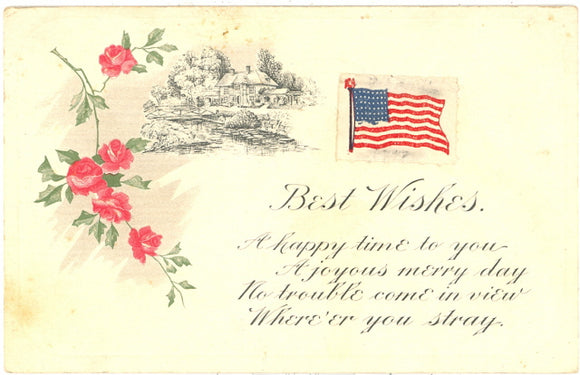 Best Wishes.
A happy time to you
A joyous merry day
No trouble come in view
Where'er you stray.